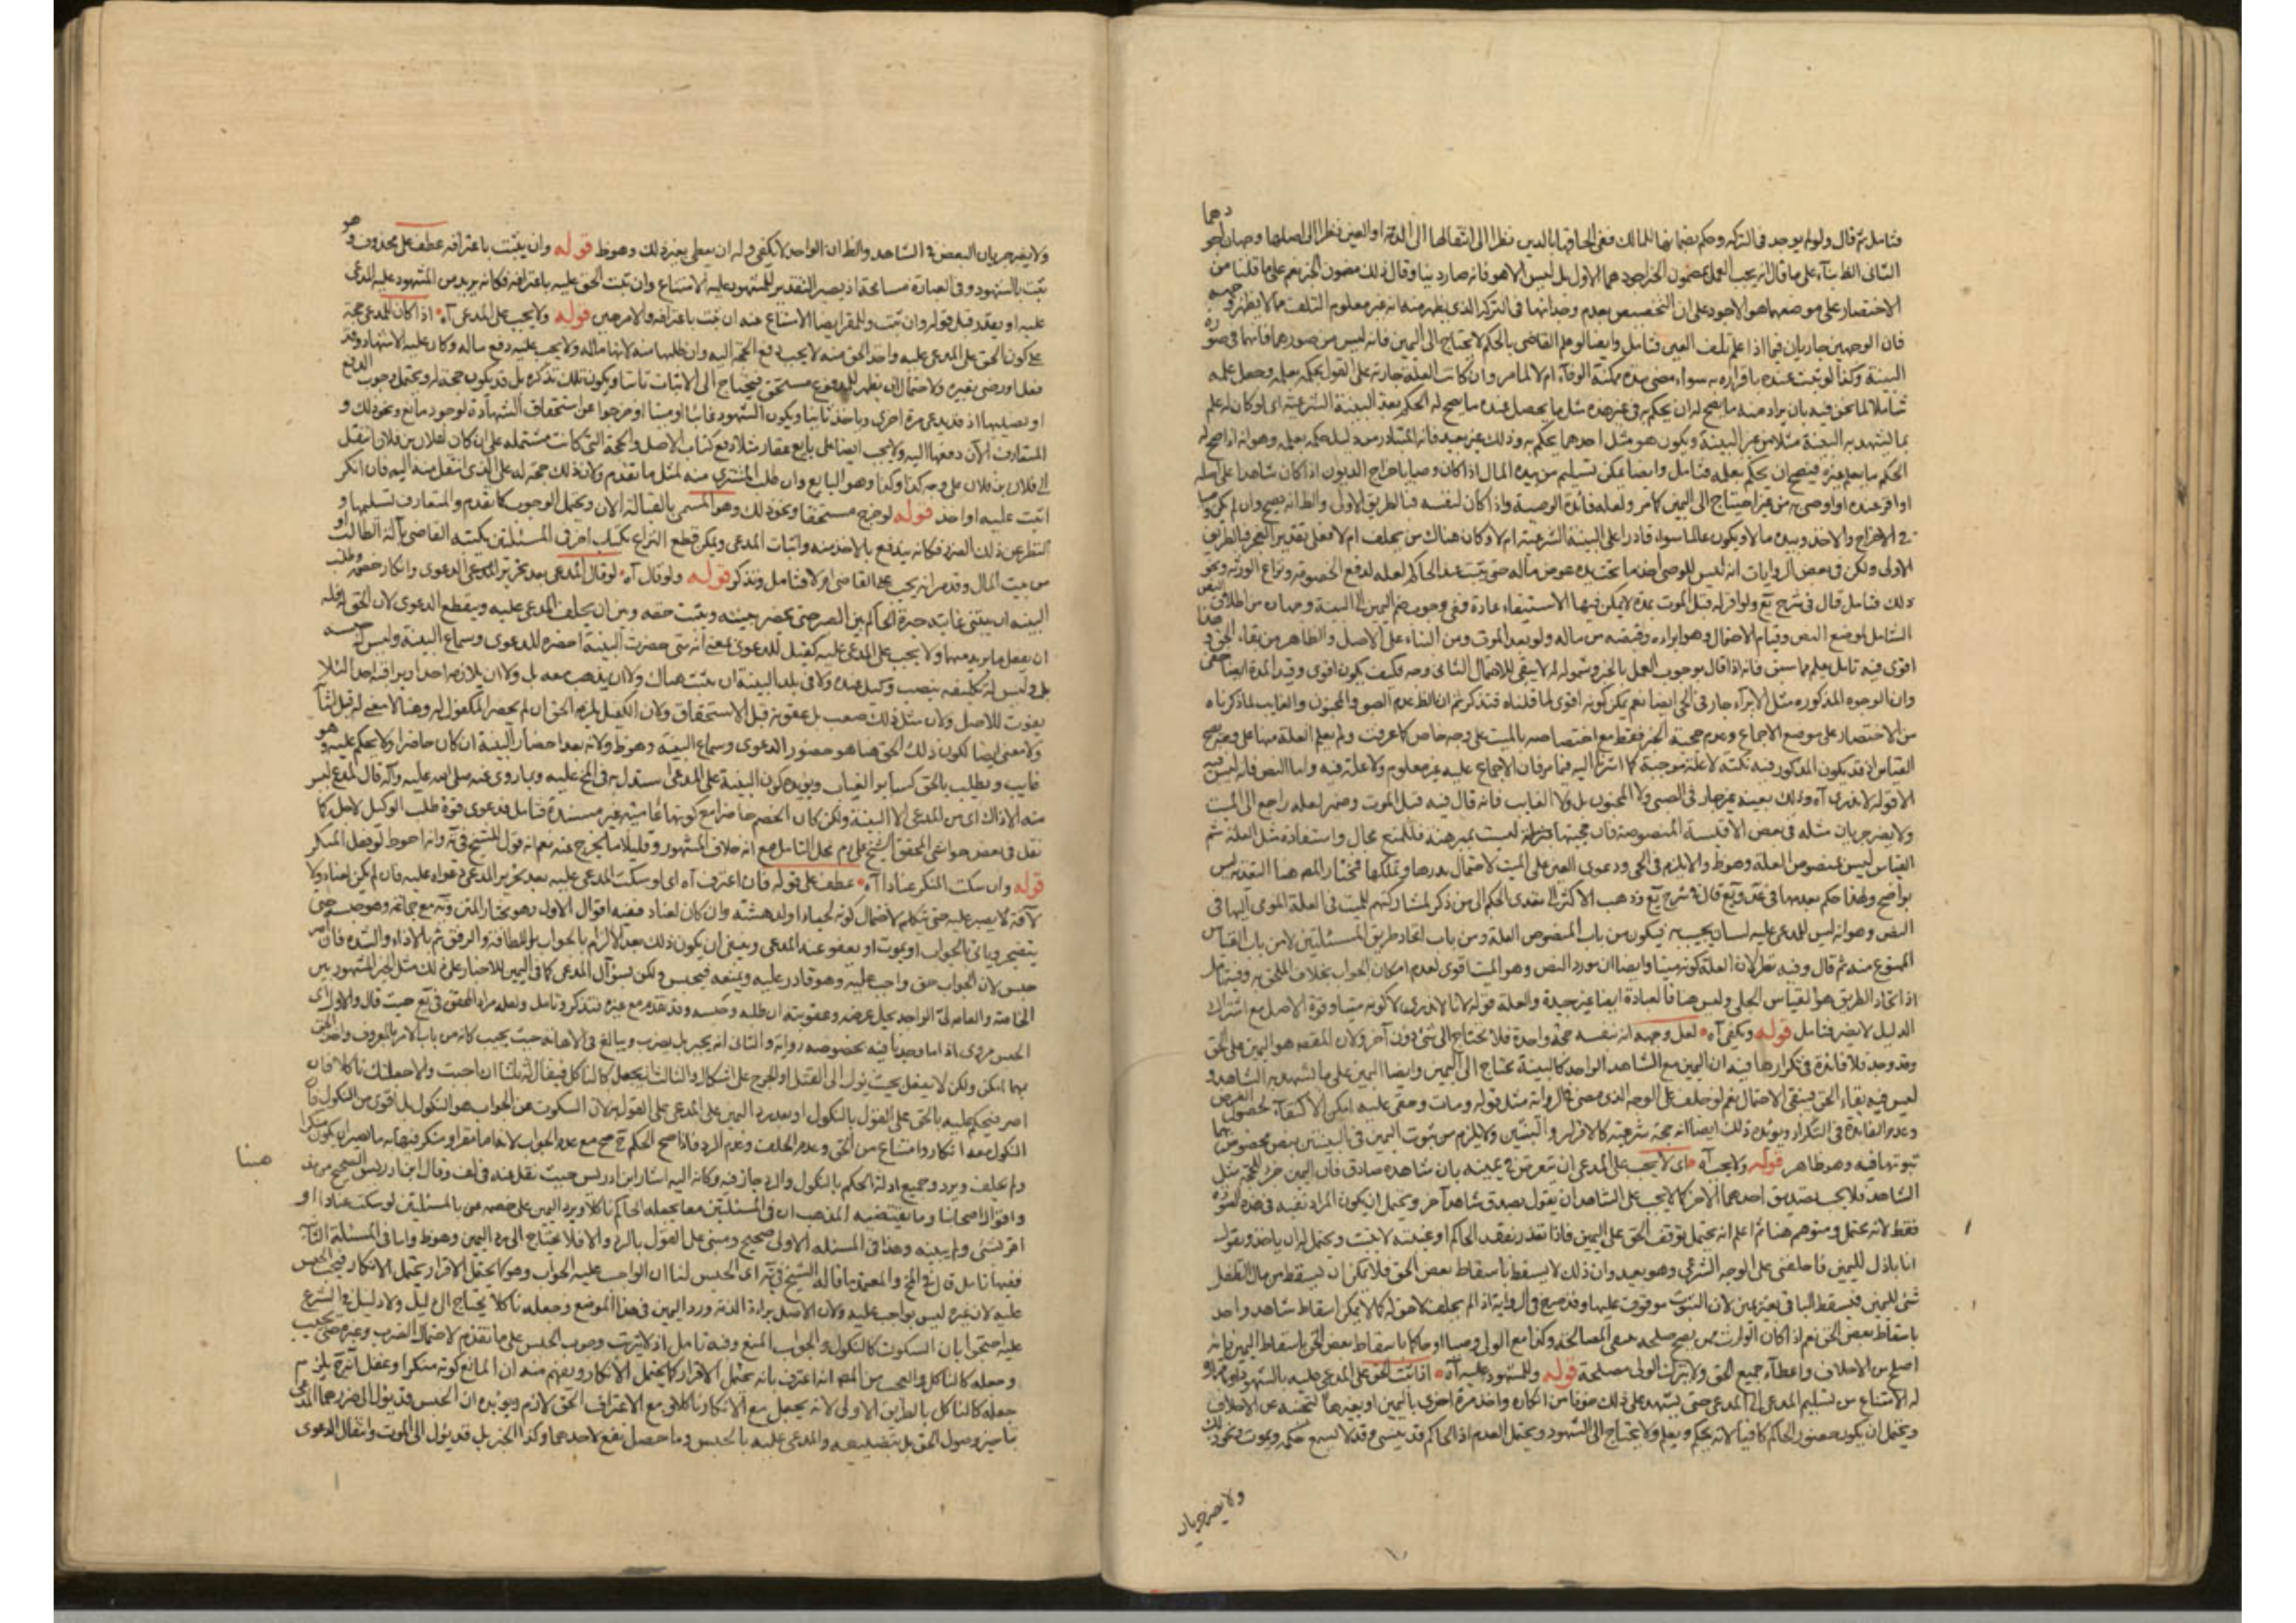 فتامل ثم قال ولو لم يوجد في التركة وحكم بضمانها للمالك ففي الحاقها بالدين نظرا الى انتقالها الى الذمة او العين نظرا الى اصلها وجهان اجودهما
الثاني الظ بناء على ما قال انه يجب العمل بمضمون الخبر اجودهما الاول بل ليس الا هو فانه صار دينا وقال ذلك مضمون الخبر نعم على ما قلنا من
الاختصار على موضعها هو الاجود على ان التخصيص بعدم وجدانها في التركة الذي يظهر منه انه غير معلوم التلف مما لا يظهر وجهه
فان الوجهين جاريان فيما اذا علم تلف العين فتامل وايضا لو علم القاضي بالحكم لا يحتاج الى اليمين فانه ليس من صورهما فانهما في صورة
البينة وكذا لو ثبت عنده باقراره به سواء مضى مدة يمكنه الوفاء ام لا لما مر وان كانت العلة جارية على القول بحكمه بعلمه وجعل علمه
شاملا لما نحن فيه بان يراد منه ما يصح له ان يحكم به في غير هذه مثل ما يحصل عنده ما يصح له الحكم بعد البينة الشرعية اي لو كان له علم
بما تشهد به البينة مثلا من غير البينة ويكون هو مثل احدهما يحكم به وذلك غير بعيد فانه المتبادر من دليل حكمه بعلمه وهو انه اذا صح له
الحكم بما يعلم غيره فيصح ان يحكم بعلمه فتامل وايضا يمكن تسليم من بيده المال اذا كان وصيا باخراج الديون اذا كان شاهدا على اصله
او اقر عنده او اوصى به من غير احتياج الى اليمين كما مر ولعله فائدة الوصية واذا كان لنفسه فبالطريق الاول والظ انه يصح وان لم يكن وصيا
في الاخراج والاخذ وبيده مال ويكون عالما سواء قادرا على البينة الشرعية ام لا وكان هناك من يحلف ام لا فعلى تقدير العجز فبالطريق
الاولى ولكن في بعض الروايات انه ليس للوصي اخذ ما تحت يده عوض ماله حتى يثبت عند الحاكم لعله لدفع الخصومة ونزاع الورثة ونحو
ذلك فتامل قال في شرح يع ولو اقر له قبل الموت بمدة لا يمكن فيها الاستيفاء عادة ففي وجوب ضم اليمين الى البينة وجهان من اطلاق النص
الشامل لموضع النص وقيام الاحتمال وهو ابراءه وقبضه من ماله ولو بعد الموت ومن البناء على الاصل والظاهر من بقاء الحق وهذا
اقوى فيه تامل يعلم مما سبق فانه اذا قال بوجوب العمل بالخبر وشموله لم لا يبقى للاحتمال الثاني وجه فكيف يكون اقوى وقيد المدة ايضا خفي
وان الوجوه المذكوره مثل الابراء جار في الحي ايضا نعم يمكن كونه اقوى لما قلناه فتذكر ثم ان الظ عدم الصبي والمجنون والغايب لما ذكرناه
من الاختصار على موضع الاجماع وعدم صحة الخبر فقط مع اختصاصه بالميت على وجه خاص كما عرفت ولم يعلم العلة منها على وجه يصح
القياس اذ قد يكون المذكور فيه نكتة لا علة موجبة كما اشرنا اليه فيما مر فان الاجماع عليه غير معلوم ولا علة فيه واما النص فانه ليس فيه
الا قوله لا ندري آه وذلك بعينه غير جار في الصبي ولا المجنون بل ولا الغايب فانه قال فيه قبل الموت وضمير لعله راجع الى الميت
ولا يضر جريان مثله في بعض الاقيسة المنصوصة فان حجيتها ليست بمبرهنة فللمنع مجال واستفادة مثل العلة ثم
القياس ليس بمنصوص العلة وهو ظ والا يلزم في الحي ودعوى العين على الميت لاحتمال بدرها وتملكها فمختار المص هنا التعدية ليس
بواضح ولهذا حكم بعدمها في عد ويع قال في شرح يع وذهب الاكثر الى تعدي الحكم الى من ذكر لمشاركتهم للميت في العلة المومى اليها في
النص وهو انه ليس للمدعى عليه لسان يجيب به فيكون من باب المنصوص العلة ومن باب اتحاد طريق المسئلتين لا من باب القياس
الممنوع منه ثم قال وفيه نظر لان العلة كونه ميتا وايضا ان مورد النص وهو الميت اقوى لعدم امكان الجواب بخلاف الملحق به وفيه تامل
اذ اتحاد الطريق هو القياس الجلي وليس هنا فالعبارة ايضا غير جيدة والعلة قوله لانا لا ندري لا كونه ميتا وقوة الاصل مع اشتراك
الدليل لا يضر فتامل قوله ويكفي آه لعل وجهه انه بنفسه حجة واحدة فلا تحتاج الى شيء دون آخر ولان المقصد هو اليمين على الحق
وقد وجد فلا فائدة في تكرارها فيه ان اليمين مع الشاهد الواحد كالبينة تحتاج الى اليمين وايضا اليمين على ما تشهد به الشاهد و
ليس فيه بقاء الحق فيبقى الاحتمال نعم لو حلف على الوجه الذي مضى في الرواية مثل قوله ومات وحقي عليه امكن الاكتفاء لحصول الغرض
وعدم الفائدة في التكرار ويؤيده ذلك ايضا انه حجة شرعية كالاقرار والبينتين ولا يلزم من ثبوت اليمين في البينتين بنص مخصوص بهما
ثبوتها فيه وهو ظاهر قوله ولا يجب آه اي لا يجب على المدعي ان يتعرض في يمينه بان شاهده صادق فان اليمين جزء للحجة مثل
الشاهد فلا يجب تصديق احدهما الآخر كما لا يجب على الشاهد ان يقول يصدق شاهدا آخر ويحتمل ان يكون المراد نفيه في هذه الصورة
فقط لانه محتمل ومتوهم هنا ثم اعلم انه يحتمل توقف الحق على اليمين فاذا تعذر بفقد الحاكم او غيبته لا يثبت ويحتمل له ان ياخذ ويقول
انا باذل لليمين فاحلفني على الوجه الشرعي وهو بعيد وان ذلك لا يسقط باسقاط بعض الحق فلا يمكن ان يسقط من مال الطفل
شيء لليمين فيسقط الباقي بغير يمين لان الثبوت موقوف عليها وقد صرح في الرواية اذا لم يحلف لا حق له كما لا يمكن اسقاط شاهد واحد
باسقاط بعض الحق نعم اذا كان الوارث ممن يصح صلحه فبقي المصالحة وكذا مع الولي وصيا او حاكما باسقاط بعض الحق باسقاط اليمين فانه
اصلح من الاحلاف واعطاء جميع الحق ولا يترك الولي مصلحة قوله وللشهود عليه آه اذا ثبت الحق على المدعى عليه بالشهود
له الامتناع من تسليم المدعى الى المدعي حتى يشهد على ذلك خوفا من انكاره واخذ مرة اخرى باليمين او بغيرها لتجنبه عن الاحلاف
ويحتمل ان يكون حضور الحاكم كافيا لانه يحكم ويعلم ولا يحتاج الى الشهود ويحتمل العدم اذ الحاكم قد ينسى وقد لا يسمع حكمه ويموت ونحو ذلك
ولا يضر جريان
ولا يضر جريان البعض في الشاهد والظ ان الواحد لا يكفي وله ان يعطي بغير ذلك وهو ظ قوله وان يثبت باعترافه عطف على محذوف وهو
يثبت بالشهود وفي العبارة مسامحة اذ يصير التقدير للمشهود عليه الامتناع وان ثبت الحق عليه باعترافه فكانه يريد من المشهود عليه المدعى
عليه او يقدر قبل قوله وان ثبت وللمقر ايضا الامتناع عنه ان يثبت باعترافه والامر هين قوله ولا يجب على المدعي آه اذا كان للمدعي حجة
على كون الحق على المدعى عليه واخذ الحق منه لا يجب دفع الحجة اليه وان طلبها منه لانها ماله ولا يجب عليه دفع ماله وكان عليه الاشهاد وقد
فعل او رضي بغيره ولاحتمال ان يظهر المدفوع مستحق فيحتاج الى الاثبات ثانيا ويكون تلك تذكره بل قد يكون حجة له ويحتمل وجوب الدفع
او يضيعها اذ قد يدعي مرة اخرى وياخذ ثانيا ويكون الشهود غايبا او ميتا او خرجوا عن استحقاق الشهادة لوجود مانع ونحو ذلك و
المتعارف الآن دفعها اليه ولا يجب ايضا على بايع عقار مثلا دفع كتاب الاصل والحجة التي كانت مشتملة على ان كان لفلان بن فلان انتقل
الى فلان بن فلان على وجه كذا وكذا وهو البايع وان طلب المشتري منه لمثل ما تقدم ولان ذلك حجة له على الذي انتقل منه اليه فان انكر
اثبت عليه او اخذ قوله لو خرج مستحقا ونحو ذلك وهو المسمى بالقبالة الآن ويحتمل الوجوب كما تقدم والمتعارف تسليمها و
النظر عن ذلك الضرر فكانه يندفع بالاخذ منه واثبات المدعي ويمكن قطع النزاع بكتاب آخر في المسئلتين يكتبه القاضي بآلة الطالب او
من بيت المال وقد مر انه يجب على القاضي ام لا فتامل وتذكر قوله ولو قال آه لو قال المدعي بعد تحرير المدعي الدعوى وانكار خصمه وطلب
البينه ان بينتي غايبة خيره الحاكم بين الصبر حتى يحضر بينته ويثبت حقه وبين ان يحلف المدعى عليه ويقطع الدعوى لان الحق له فله
ان يفعل ما يريد منها ولا يجب على المدعى عليه كفيل للدعوى بمعنى انه متى حضرت البينة احضره للدعوى وسماع البينة وليس له حبسه
بل وليس له تكليفه بنصب وكيل عنده ولا في بلد البينة ان يثبت هناك ولا ان يذهب معه بل ولا ان يلازمه احد او يراقبه احد لئلا
يفوت للاصل ولان مثل ذلك صعب بل عقوبة قبل الاستحقاق ولان الكفيل يلزمه الحق ان لم يحضر المكفول له وهنا لا معنى له قبل الثبات
ولا معنى ايضا لكون ذلك الحق هنا هو حضور الدعوى وسماع البينة وهو ظ ولانه بعد احضار البينة ان كان حاضرا والا يحكم عليه وهو
غايب ويطلب بالحق كساير الغياب ويؤيده كون البينة على المدعي استدل به في المخ عليه وبما روي عنه صلى الله عليه وآله قال للمدع ليس
منه الا ذاك اي من المدعي الا البينة ولكن كان الخصم حاضرا مع كونها عامية غير مسندة فتامل فدعوى قوة طلب الوكيل لاجل كما
نقل في بعض حواشي المحقق الشيخ علي رم محل التامل مع انه خلاف المشهور وقليلا ما يخرج عنه نعم انه قول للشيخ في يه وانه احوط لو فعل المنكر
قوله وان سكت المنكر عنادا آه عطف على قوله فان اعترف آه اي لو سكت المدعى عليه بعد تحرير المدعي دعواه عليه فان لم يكن لعناد ولا
لآفة لا يصبر عليه حتى يتكلم لاحتمال كونه لحياء او لدهشته وان كان لعناد ففيه اقوال الاول وهو مختار المتن ويه مع جماعة وهو حبسه حتى
يتضجر وياتي بالجواب او يموت او يعفو عنه المدعي وينبغي ان يكون ذلك بعد الالزام بالجواب باللطافة والرفق ثم بالاذاء والشده فان اصر
حبس لان الجواب حق واجب عليه وهو قادر عليه ويمنعه فيحبس ولكن بسؤال المدعي كما في اليمين للاخبار على ذلك مثل الخبر المشهور بين
الخاصة والعامه لي الواجد يحل عرضه وعقوبته ان طله وحبسه وقد تقدم مع غيره فتذكر وتامل ولعله مراد المحقق في يع حيث قال والاول اي
الحبس مروي اذ اما وجدنا فيه بخصوصه رواية والثاني انه يجبر بل يضرب ويبالغ في الاهانه حيث يجيب كانه من باب الامر بالمعروف واخذ الحق
مهما امكن ولكن لا يفعل بحيث يؤل الى القتل او الجرح على اشكال والثالث يجعل كالناكل فيقال له ثلثا ان اجبت والا جعلتك ناكلا فان
اصر فيحكم عليه بالحق على القول بالنكول او بعد رد اليمين على المدعي على القول به لان السكوت عن الجواب هو النكول بل اقوى من النكول فان
النكول معه انكار وامتناع من الحق وعدم الحلف وعدم الرد فاذا صح الحكم به صح مع عدم الجواب لانه اما مقر او منكر فنهايته ما يصير ان يكون منكرا
ولم يحلف ويرد وجميع ادلة الحكم بالنكول والرد جاز فيه وكانه اليه اشار ابن ادريس حيث نقل عنه في لف وقال ابن ادريس الصحيح من مذهب
هنا
واقوال اصحابنا وما يقتضيه المذهب ان في المسئلتين معا يجعله الحاكم ناكلا ويرد اليمين على خصمه عن بالمسئلتين لو سكت عنادا او
اقر بشيء ولم يبينه وهذا في المسئله الاولى صحيح ومبني على القول بالرد والا فلا يحتاج الى رد اليمين وهو ظ واما في المسئلة الثانية
ففيها تامل قال في المخ والمعتمد ما قاله الشيخ في يه اي الحبس لنا ان الواجب عليه الجواب وهو كما يحتمل الاقرار يحتمل الانكار فيجب الحبس
عليه لان غيره ليس بواجب عليه ولان الاصل براءة الذمة ورد اليمين في هذا الموضع وجعله ناكلا يحتاج الى دليل ولا دليل في الشرع
عليه احتجوا بان السكوت كالنكول عن الجواب المنع وفيه تامل اذ لا يترتب وجوب الحبس على ما تقدم لاحتمال الضرب وغيره حتى يجيب
وجعله كالناكل والعجب من المص انه اعترف بانه يحتمل الاقرار كما يحتمل الانكار ويفهم منه ان المانع كونه منكرا وغفل انه يلزم
جعله كالناكل بالطريق الاولى لانه يجعل مع الانكار ناكلا فمع الاعتراف الحق لازم ويؤيده ان الحبس قد يؤل الى ضررهما المدعي
بتاخير وصول الحق بل بتضييعه والمدعى عليه بالحبس وما حصل نفع لاحدهما وكذا الجبر بل قد يؤل الى الموت وانتقال الدعوى